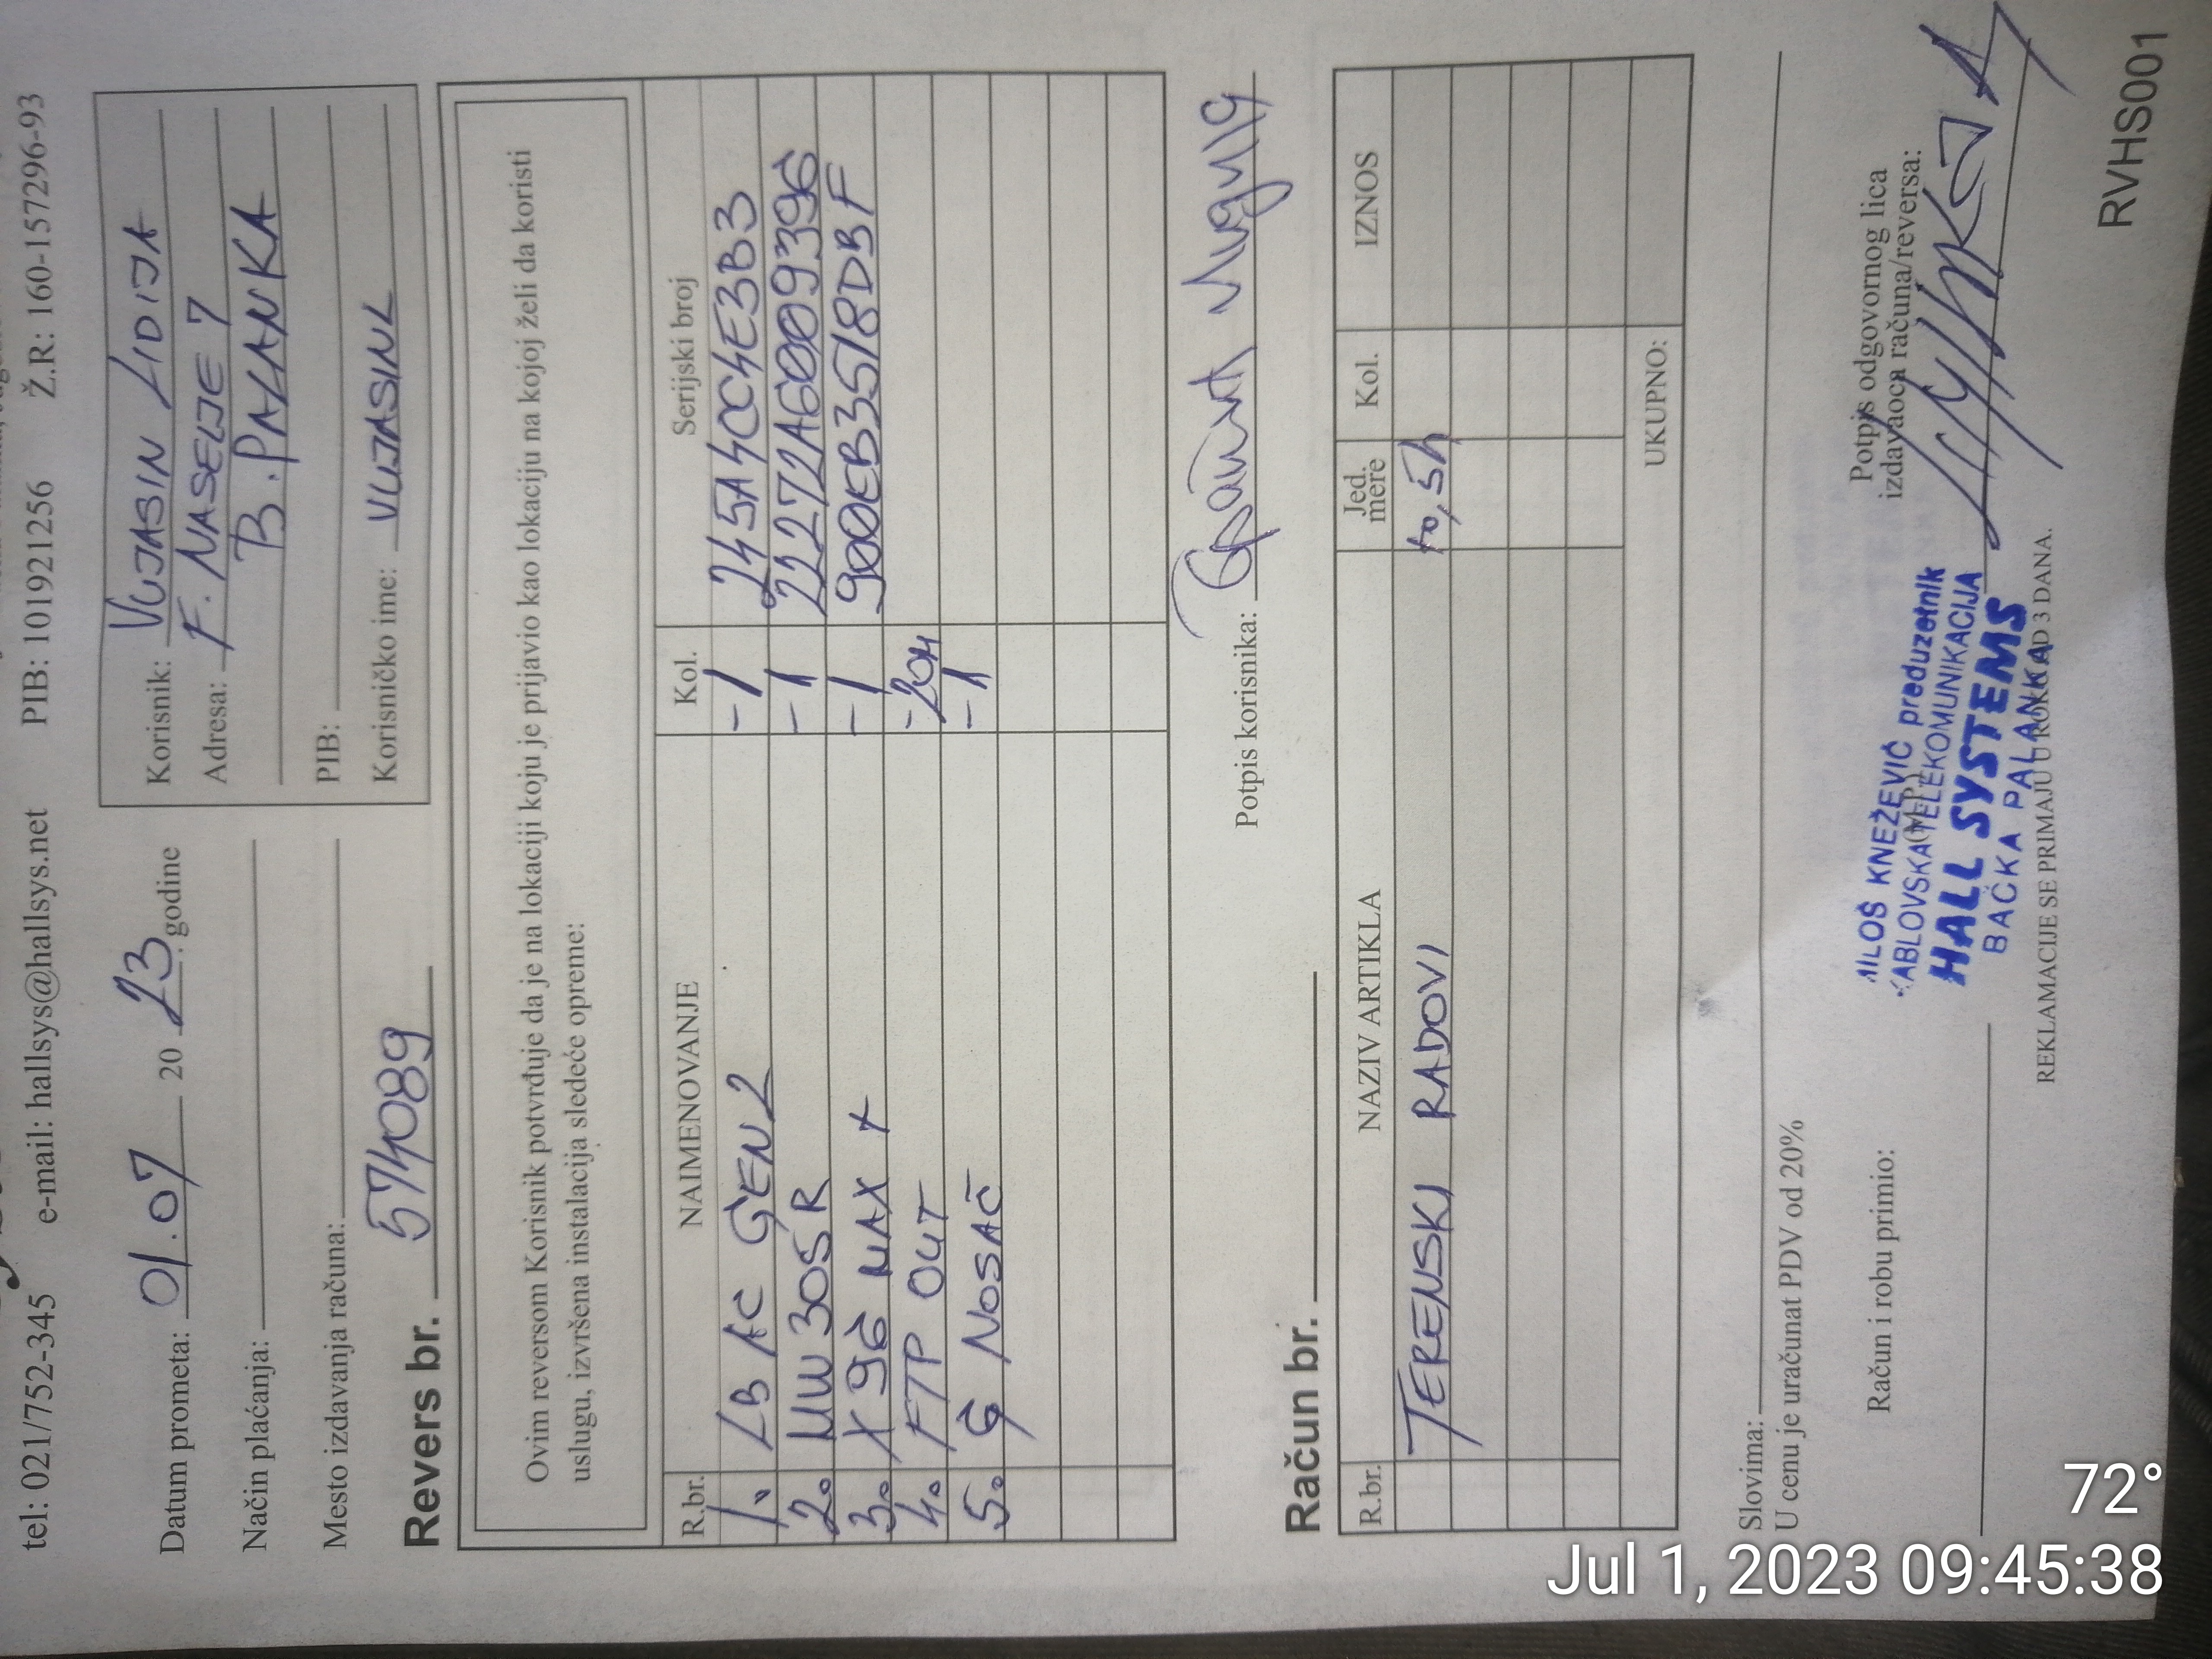 tel: 021/752-345 e-mail: hallsys@hallsys.net PIB: 101921256 Ž.R: 160-157296-93
Datum prometa: 01.07 20 23. godine
Način plaćanja:
Mesto izdavanja računa:
Korisnik: VUJASIN LIDIJA
Adresa: F. NASELJE 7
B. PALANKA
PIB:
Korisničko ime: VUJASINL
Revers br. 574089
Ovim reversom Korisnik potvrđuje da je na lokaciji koju je prijavio kao lokaciju na kojoj želi da koristi
uslugu, izvršena instalacija sledeće opreme:
R.br. NAIMENOVANJE Kol. Serijski broj
1. LB AC GEN2 -1 245A4CC4E3B3
2. MW 305R -1 22272A6009396
3. X 96 MAX + -1 900EB3518DBF
4. FTP OUT -20M
5. G NOSAČ -1
Potpis korisnika:
Račun br.
R.br. NAZIV ARTIKLA Jed. mere Kol. IZNOS
TERENSKI RADOVI to,5h
UKUPNO:
Slovima:
U cenu je uračunat PDV od 20%
Račun i robu primio:
(M.P.)
Potpis odgovornog lica
izdavaoca računa/reversa:
MILOŠ KNEŽEVIĆ preduzetnik
KABLOVSKA TELEKOMUNIKACIJA
HALL SYSTEMS
BAČKA PALANKA
REKLAMACIJE SE PRIMAJU U ROKU OD 3 DANA.
RVHS001
72°
Jul 1, 2023 09:45:38